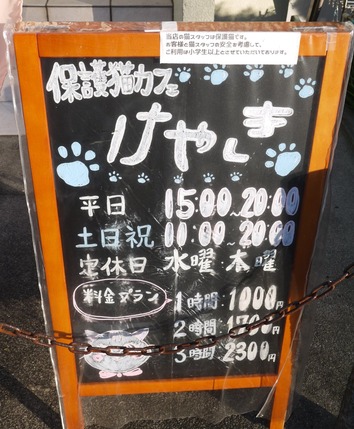 当店の猫スタッフは保護猫です。
お客様と猫スタッフの安全を考慮して、
ご利用は小学生以上とさせていただいております。
保護猫カフェ
けやしま
平日 15:00~20:00
土日祝 11:00~20:00
定休日 水曜 木曜
料金プラン
1時間:1000円
2時間:1700円
3時間:2300円